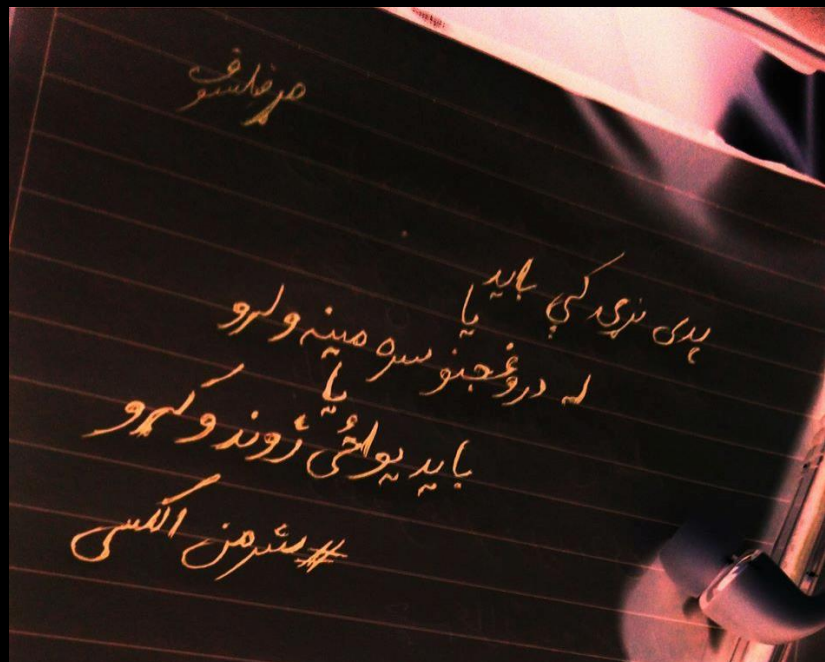 پدی نړۍ کې باید
یا
له دروغجنو سره مینه ولرو
یا
باید یواځې ژوند وکړو
#شرمن الکسی